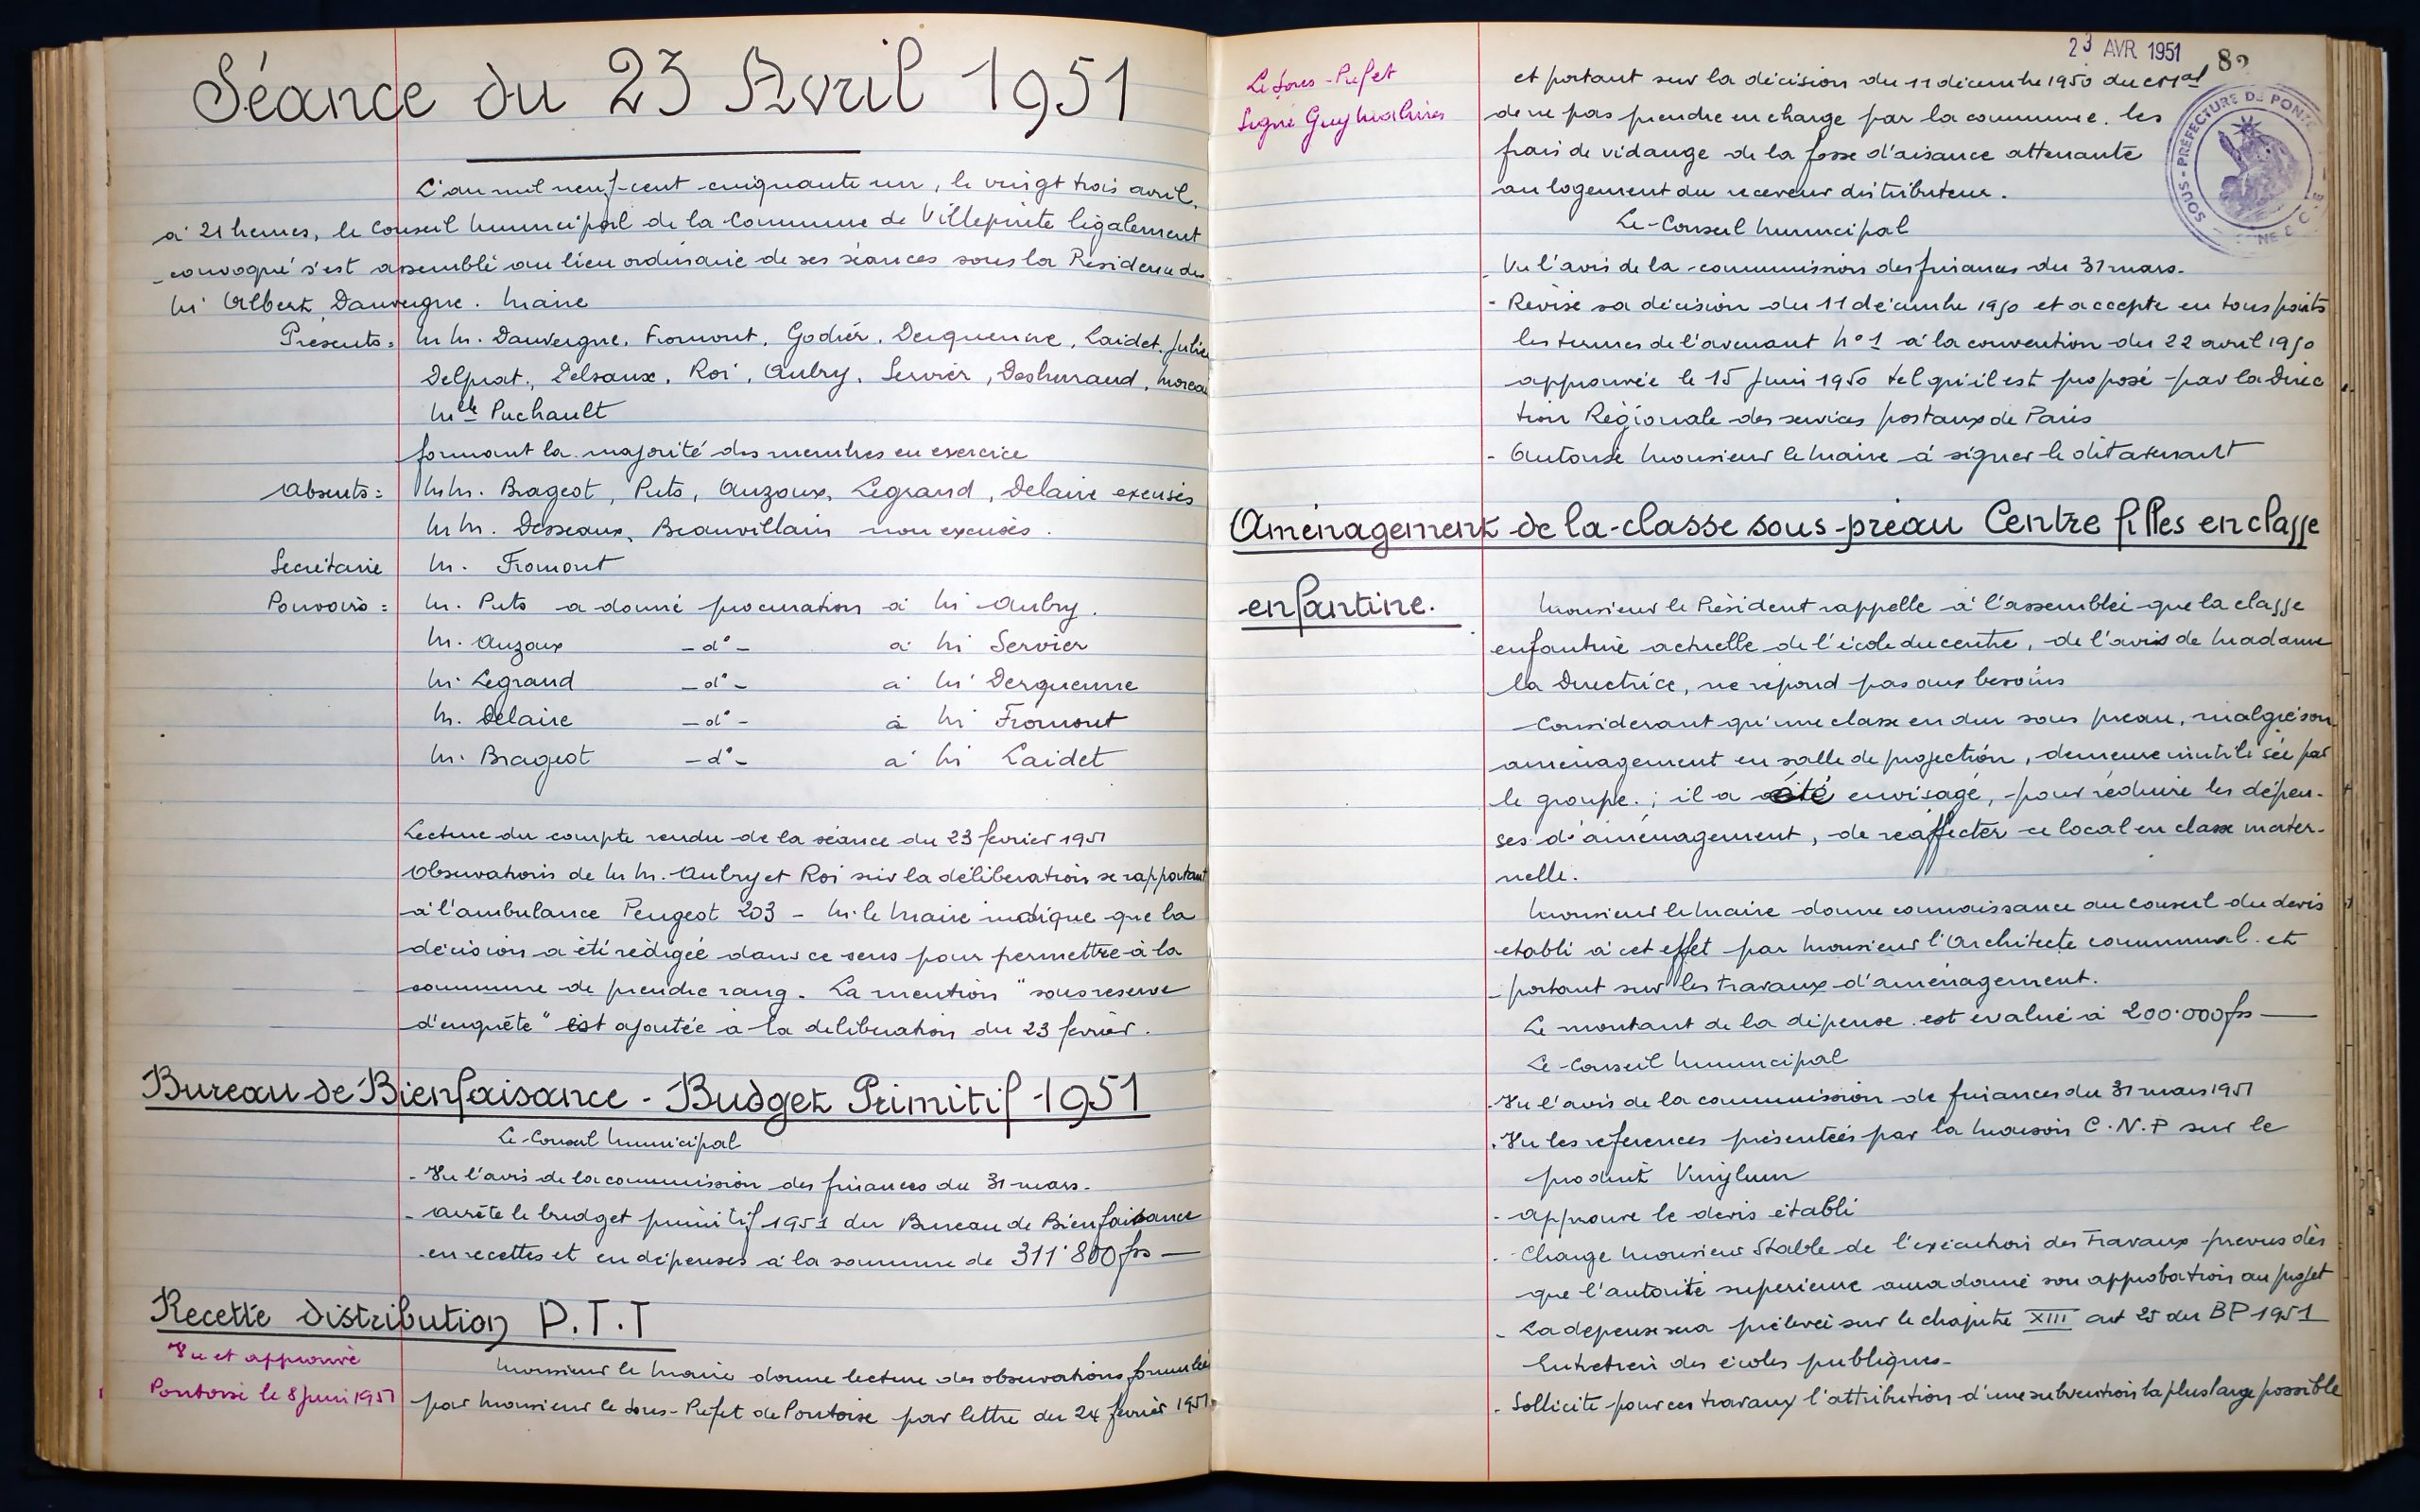 Séance du 23 Avril 1951
L'an mil neuf-cent cinquante un, le vingt trois avril,
à 21 heures, le Conseil Municipal de la Commune de Villepinte légalement
convoqué s'est assemblé au lieu ordinaire de ses séances sous la Présidence de
Mr Albert Dauvergne. Maire
Présents : MM. Dauvergne, Fromont, Godier, Derquenne, Laidet, Julie
Delprat, Delsaux, Roi, Aubry, Servier, Deshuraud, Moreau
Mlle Puchault
formant la majorité des membres en exercice
Absents : MM. Brageot, Puto, Auzoux, Legrand, Delaire excusés
MM. Desseaux, Beauvillain non excusés.
Secrétaire M. Fromont
Pouvoirs : M. Puto a donné procuration à Mr Aubry.
M. Auzoux - d° - à Mr Servier
M. Legrand - d° - à Mr Derquenne
M. Delaire - d° - à Mr Fromont
M. Brageot - d° - à Mr Laidet
Lecture du compte rendu de la séance du 23 février 1951
Observations de MM. Aubry et Roi sur la délibération se rapportant
à l'ambulance Peugeot 203 - M. le Maire indique que la
décision a été rédigée dans ce sens pour permettre à la
commune de prendre rang. La mention "sous reserve
d'enquête" est ajoutée à la deliberation du 23 fevrier.
Bureau de Bienfaisance - Budget Primitif 1951
Le Conseil Municipal
- Vu l'avis de la commission des finances du 31 mars.
- arrête le budget primitif 1951 du Bureau de Bienfaisance
en recettes et en dépenses à la somme de 311'800 frs —
Recette distribution P.T.T
Vu et approuvé
Pontoise le 8 Juin 1951
Monsieur le Maire donne lecture des observations formulées
par Monsieur le Sous-Préfet de Pontoise par lettre du 24 février 1951
23 AVR 1951
Le Sous-Préfet
Signé Guy
SOUS-PRÉFECTURE DE
et portant sur la décision du 11 décembre 1950 du Cel Mal
de ne pas prendre en charge par la commune. les
frais de vidange de la fosse d'aisance attenante
au logement du receveur distributeur.
Le Conseil Municipal
- Vu l'avis de la commission des finances du 31 mars.
- Revise sa décision du 11 décembre 1950 et accepte en tous points
les termes de l'avenant N°1 à la convention du 22 avril 1950
approuvée le 15 Juin 1950 tel qu'il est proposé par la Direc
tion Régionale des services postaux de Paris
- Autorise Monsieur le Maire à signer le dit avenant
Aménagement de la classe sous-préau Centre filles en classe
enfantine.
Monsieur le Président rappelle à l'assemblée que la classe
enfantine actuelle de l'école du centre, de l'avis de Madame
la Directrice, ne répond pas aux besoins
Considérant qu'une classe en dur sous preau, malgré son
aménagement en salle de projection, demeure inutilisée par
le groupe. ; il a été envisagé, pour réduire les dépen-
ses d'aménagement, de réaffecter ce local en classe mater-
nelle.
Monsieur le Maire donne connaissance au conseil du devis
etabli à cet effet par Monsieur l'Architecte communal et
portant sur les travaux d'aménagement.
Le montant de la dépense est évalué à 200.000 frs —
Le Conseil Municipal
- Vu l'avis de la commission de finances du 31 mars 1951
- Vu les références présentées par la Maison C.N.P sur le
produit Vinylum
- approuve le devis établi
- Charge Monsieur Stable de l'exécution des Travaux prévus dès
que l'autorité superieure aura donné son approbation au projet
- La dépense sera prélevée sur le chapitre XIII art 25 du BP 1951
Entretien des écoles publiques-
- Sollicite pour ces travaux l'attribution d'une subvention la plus large possible